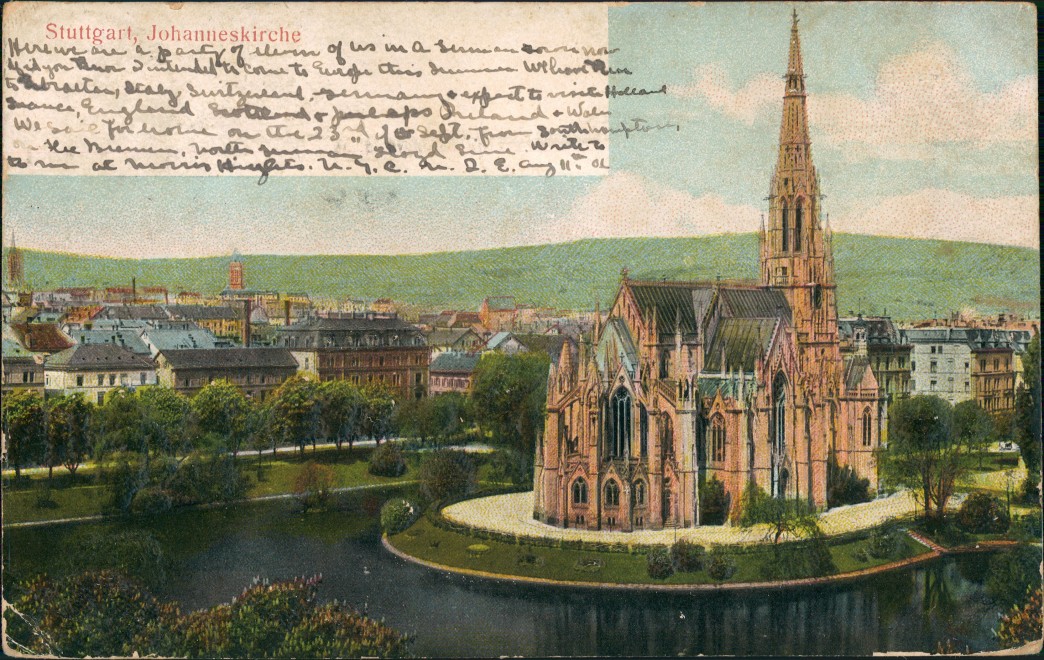 Stuttgart, Johanneskirche
Here we are a party of eleven of us in a German town now
Did you know I intended to come to Europe this Summer We have been
to Gibraltar, Italy, Switzerland, Germany & expect to visit Holland
France, England Scotland & perhaps Ireland & Wales
We sail for home on the 23rd of Sept. from Southampton,
on the Bremen, North German Lloyd Line Write to
to me at Morris Heights. N.Y.C. M. D. E. Aug 11th